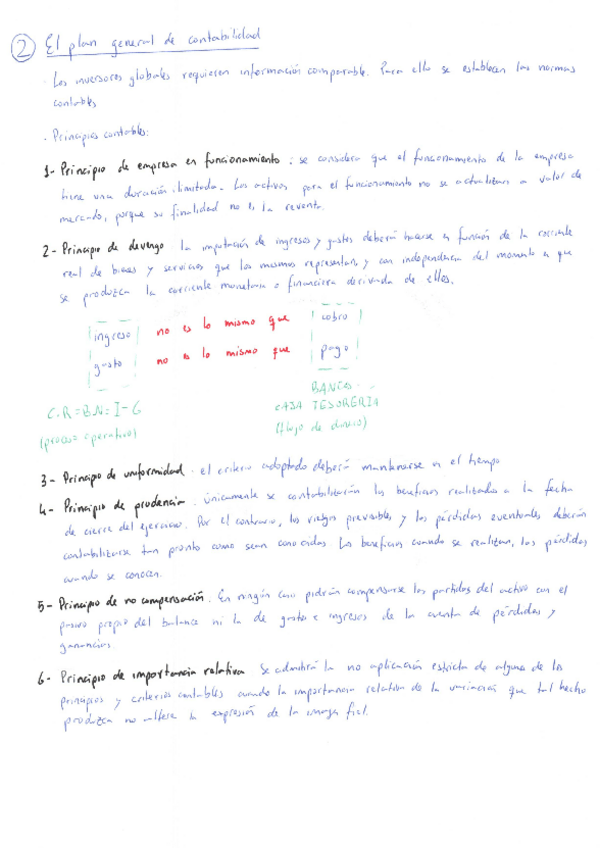 ② El plan general de contabilidad
· Los inversores globales requieren información comparable. Para ello se establecen las normas
contables
· Principios contables:
1- Principio de empresa en funcionamiento : se considera que el funcionamiento de la empresa
tiene una duración ilimitada. Los activos para el funcionamiento no se actualizan a valor de
mercado, porque su finalidad no es la reventa.
2- Principio de devengo : la imputación de ingresos y gastos deberá hacerse en función de la corriente
real de bienes y servicios que los mismos representan, y con independencia del momento en que
se produzca la corriente monetaria o financiera derivada de ellos.
ingreso no es lo mismo que cobro
gasto no es lo mismo que pago
C.R = B.N = I-G
(proceso operativo)
BANCOS...
CAJA TESORERIA
(flujo de dinero)
3- Principio de uniformidad . el criterio adoptado deberá mantenerse en el tiempo
4- Principio de prudencia . únicamente se contabilizarán los beneficios realizados a la fecha
de cierre del ejercicio. Por el contrario, los riesgos previsibles y las pérdidas eventuales deberán
contabilizarse tan pronto como sean conocidas. Los beneficios cuando se realizan, las pérdidas
cuando se conocen.
5- Principio de no compensación . En ningún caso podrán compensarse las partidas del activo con el
pasivo propio del balance ni la de gastos e ingresos de la cuenta de pérdidas y
ganancias.
6- Principio de importancia relativa Se admitirá la no aplicación estricta de alguno de los
principios y criterios contables cuando la importancia relativa de la variación que tal hecho
produzca no altere la expresión de la imagen fiel.